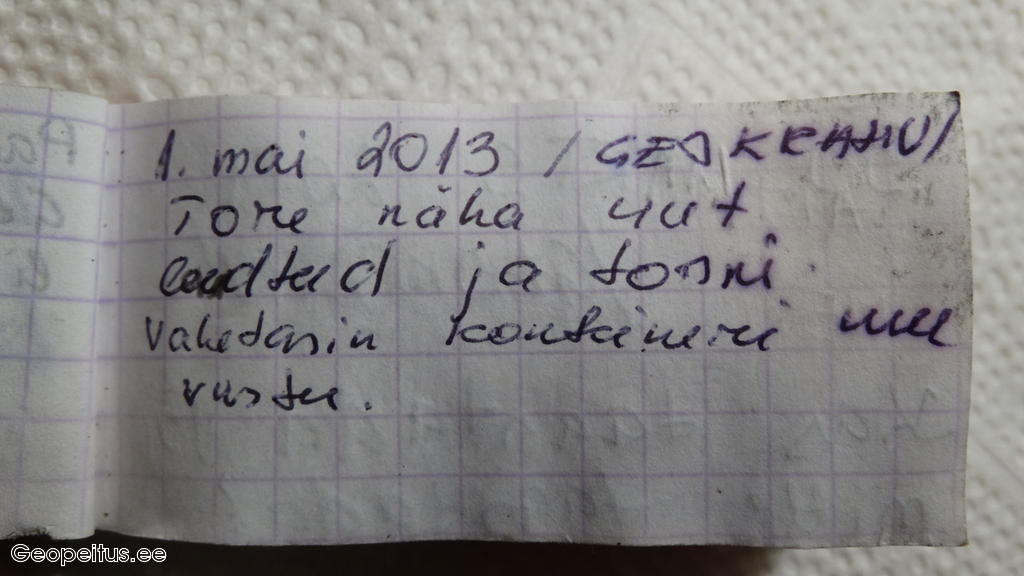 1. mai 2013 / GEOKRAHV/
Tore näha uut
laudteed ja torni.
Vahetasin konteineri uue
vastu.
Geopeitus.ee